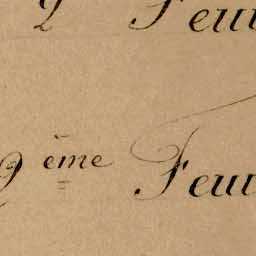 2 Feui
9 ème Feui